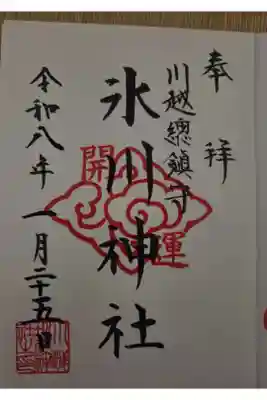 奉拝
川越總鎮守
氷川神社
開運
令和八年一月二十五日